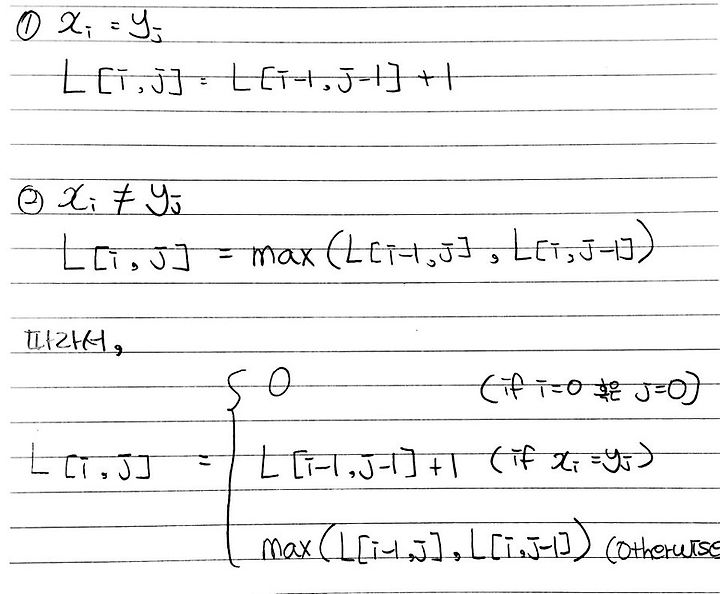 ① xᵢ = yⱼ
L[i,j] = L[i-1,j-1] + 1
② xᵢ ≠ yⱼ
L[i,j] = max(L[i-1,j], L[i,j-1])
따라서,
0 (if i=0 또는 j=0)
L[i,j] = { L[i-1,j-1]+1 (if xᵢ=yⱼ)
max(L[i-1,j], L[i,j-1]) (otherwise